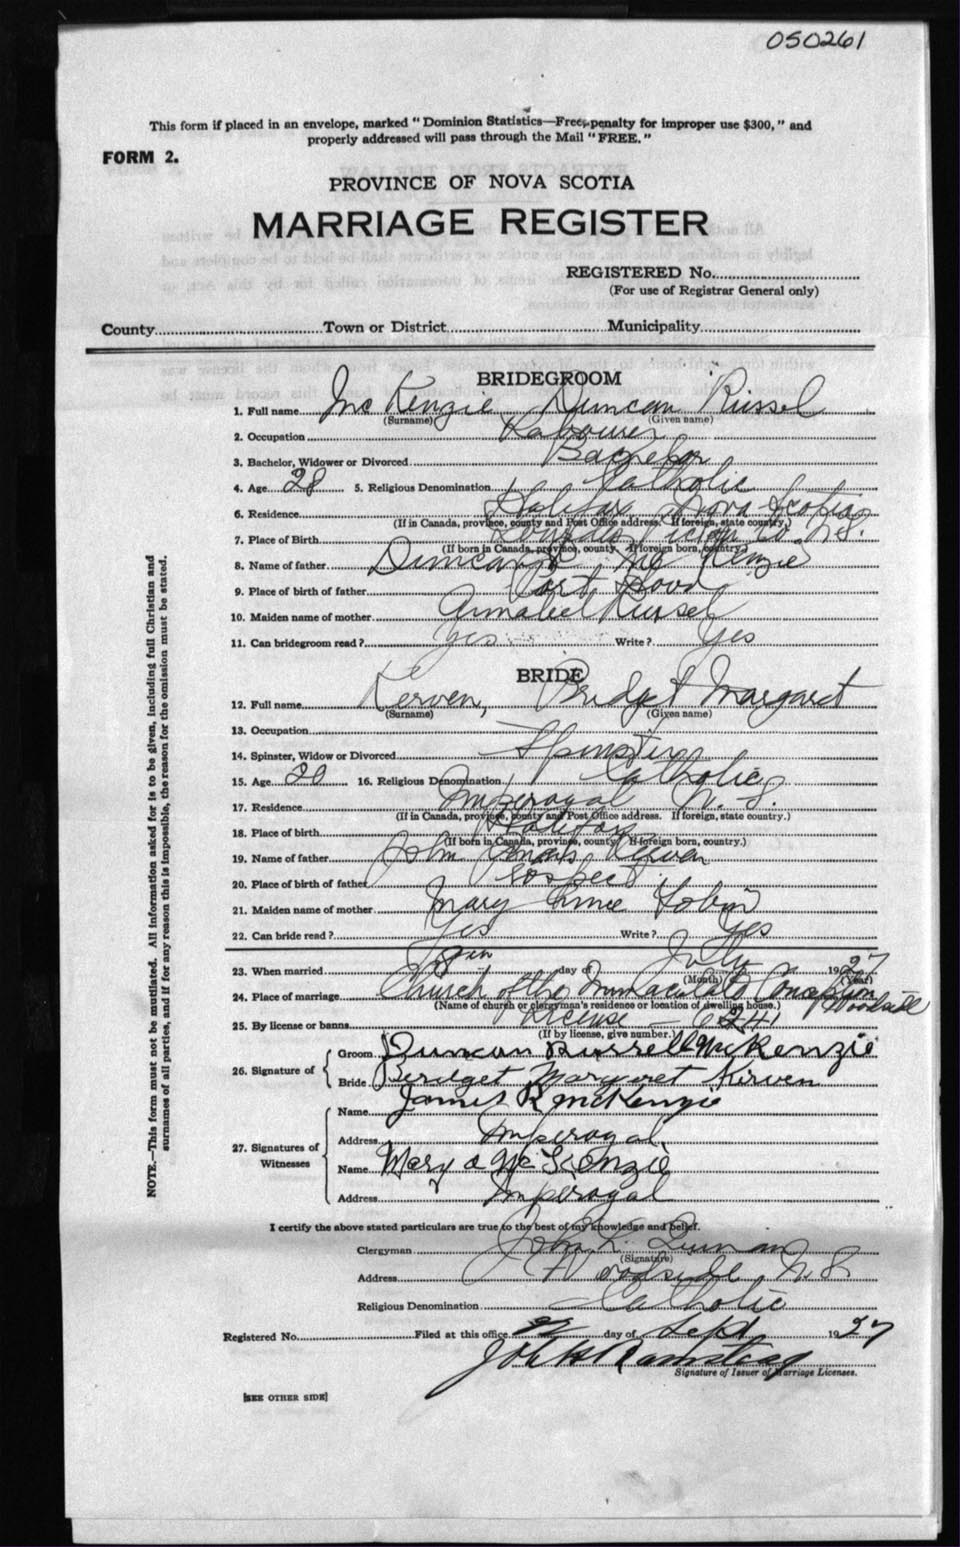 050261
This form if placed in an envelope, marked "Dominion Statistics—Free, penalty for improper use $300," and
properly addressed will pass through the Mail "FREE."
FORM 2.
PROVINCE OF NOVA SCOTIA
MARRIAGE REGISTER
REGISTERED No.
(For use of Registrar General only)
County Town or District Municipality
BRIDEGROOM
1. Full name Mc Kenzie, Duncan Russel
(Surname) (Given name)
2. Occupation Labourer
3. Bachelor, Widower or Divorced Bachelor
4. Age 28 5. Religious Denomination Catholic
6. Residence Halifax Nova Scotia
(If in Canada, province, county and Post Office address. If foreign, state country.)
7. Place of Birth Pictou Co. N.S.
(If born in Canada, province, county. If foreign born, country.)
8. Name of father Duncan Mc Kenzie
9. Place of birth of father Port Hood
10. Maiden name of mother Annabel Russel
11. Can bridegroom read? Yes Write? Yes
BRIDE
12. Full name Kerven, Bridget Margaret
(Surname) (Given name)
13. Occupation
14. Spinster, Widow or Divorced Spinster
15. Age 20 16. Religious Denomination Catholic
17. Residence Imperoyal N. S.
(If in Canada, province, county and Post Office address. If foreign, state country.)
18. Place of birth Halifax
(If born in Canada, province, county. If foreign born, country.)
19. Name of father John Kerven
20. Place of birth of father Prospect
21. Maiden name of mother Mary Tobin
22. Can bride read? Yes Write? Yes
23. When married day of July 1927
(Month) (Year)
24. Place of marriage Church of the Immaculate Conception Woodside
(Name of church or clergyman's residence or location of dwelling house.)
25. By license or banns License —
(If by license, give number.)
26. Signature of Groom Duncan Russell McKenzie
Bride Bridget Margaret Kirven
27. Signatures of Witnesses Name James R McKenzie
Address Imperoyal
Name Mary a McKenzie
Address Imperoyal
I certify the above stated particulars are true to the best of my knowledge and belief.
Clergyman John K.
(Signature)
Address Woodside N.S.
Religious Denomination Catholic
Registered No. Filed at this office day of Sept 1927
Signature of Issuer of Marriage Licenses.
[SEE OTHER SIDE]
NOTE.—This form must not be mutilated. All information asked for is to be given, including full Christian and
surnames of all parties, and if for any reason this is impossible, the reason for the omission must be stated.